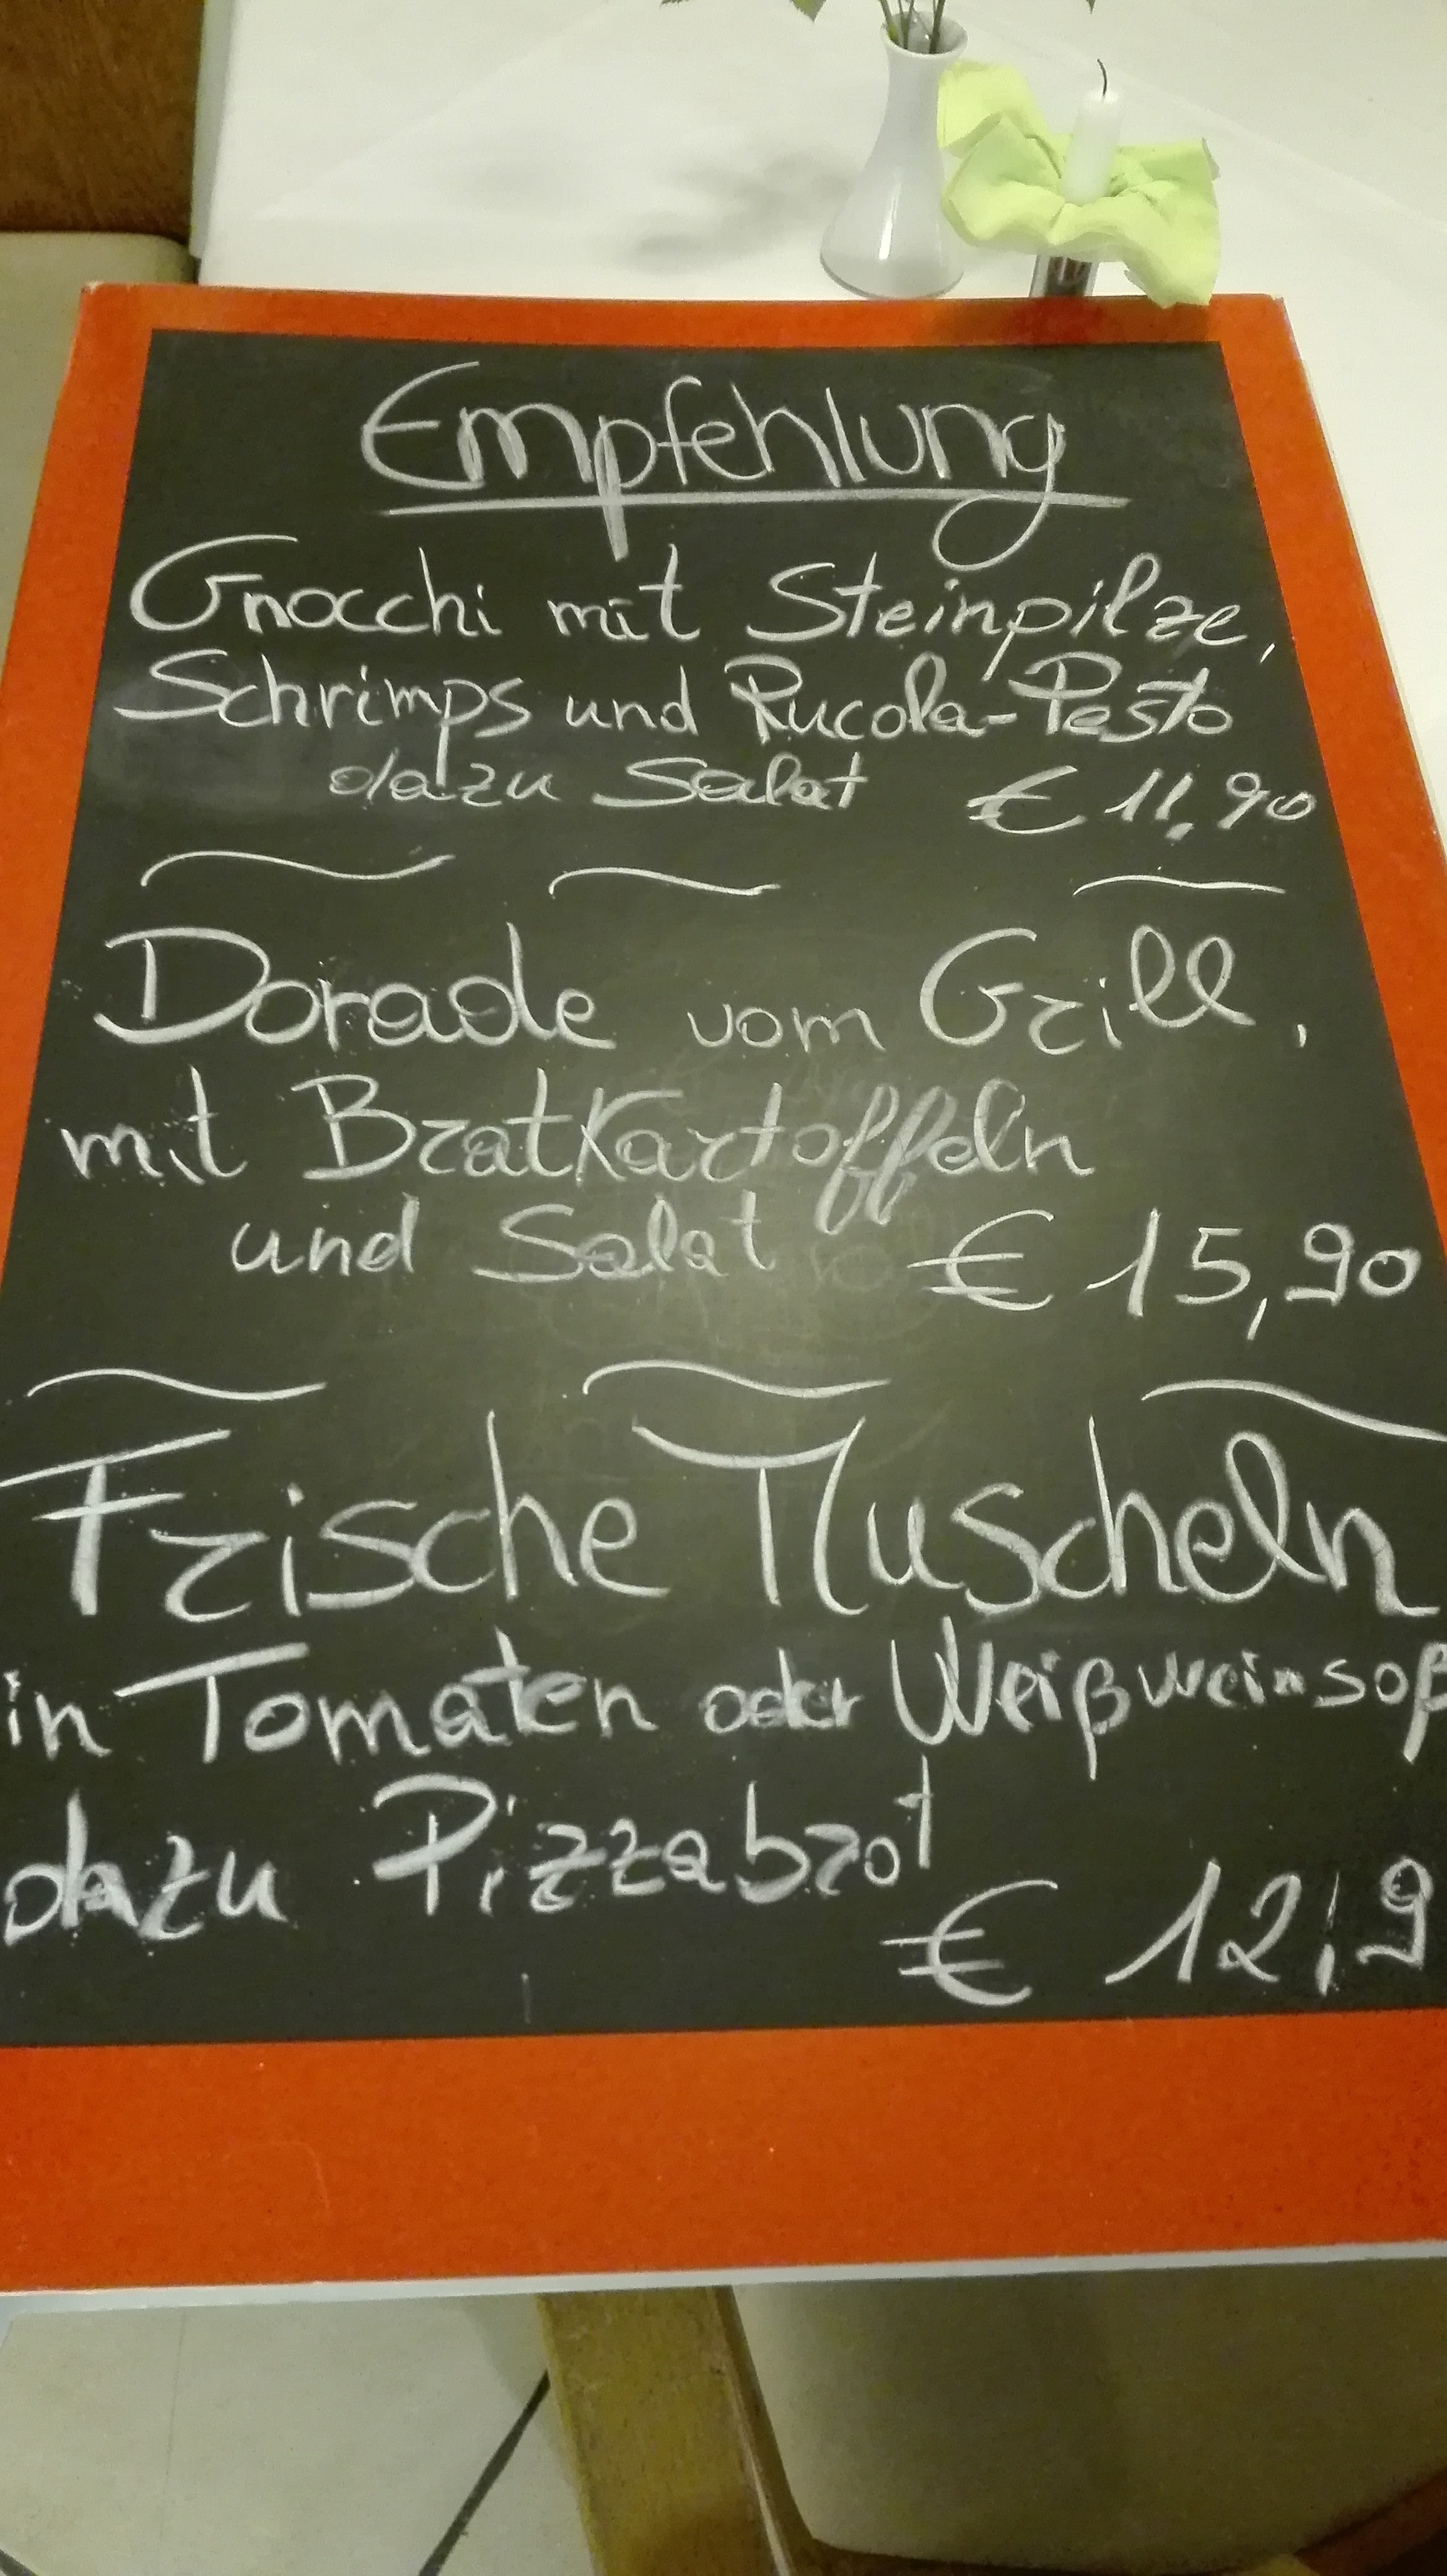 Empfehlung
Gnocchi mit Steinpilze,
Schrimps und Rucola-Pesto
dazu Salat € 11,90
Dorade vom Grill,
mit Bratkartoffeln
und Salat € 15,90
Frische Muscheln
in Tomaten oder Weißweinsoß
dazu Pizzabrot
€ 12,9